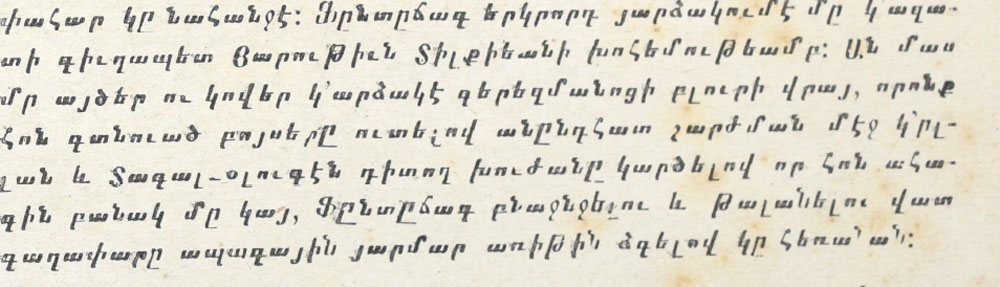 փահար կը նահանջէ։ Ֆընտըճագ երկրորդ յարձակումէ մը կ'ազա-
տի գիւղապետ Յարութիւն Տիլքիեանի խոհեմութեամբ։ Ան մաս
մը այծեր ու կովեր կ'արձակէ գերեզմանոցի բլուրի վրայ, որոնք
հոն գտնուած բոյսերը ուտելով անընդհատ շարժման մէջ կ'ըլ-
լան և Տագալ-օլուգէն դիտող խուժանը կարծելով որ հոն ահա-
գին բանակ մը կայ, Ֆընտըճագ բնաջնջելու և թալանելու վատ
գաղափարը ապագային յարմար առիթին ձգելով կը հեռանան։